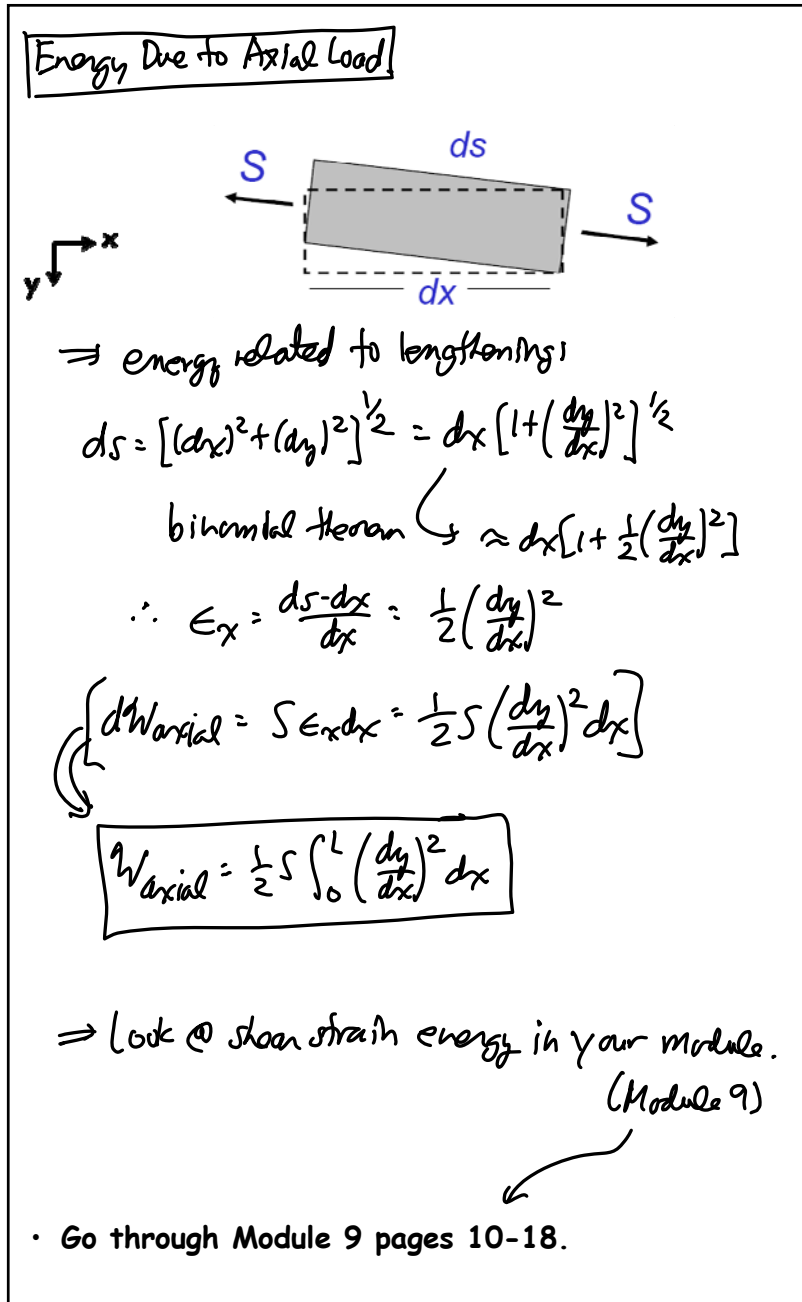 Energy Due to Axial Load
ds
S
S
x
y
dx
⇒ energy related to lengthening:
ds = [(dx)² + (dy)²]^{1/2} = dx [1 + (dy/dx)²]^{1/2}
binomial theorem ↳ ≈ dx[1 + 1/2 (dy/dx)²]
∴ ϵx = (ds-dx)/dx = 1/2 (dy/dx)²
[dWaxial = S ϵx dx = 1/2 S (dy/dx)² dx]
Waxial = 1/2 S ∫₀ᴸ (dy/dx)² dx
⇒ Look @ shear strain energy in your module.
(Module 9)
• Go through Module 9 pages 10-18.